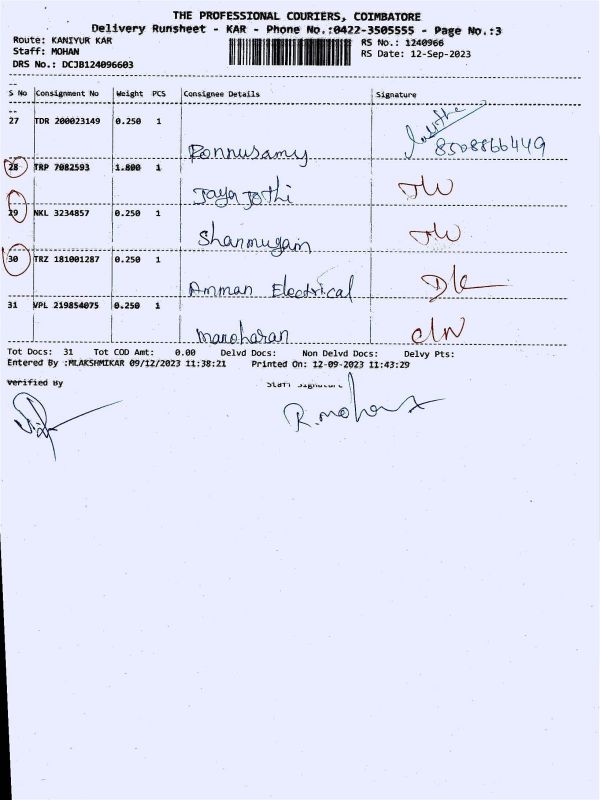 THE PROFESSIONAL COURIERS, COIMBATORE
Delivery Runsheet - KAR - Phone No.:0422-3505555 - Page No.:3
Route: KANIYUR KAR RS No.: 1240966
Staff: MOHAN RS Date: 12-Sep-2023
DRS No.: DCJB124096603
S No Consignment No Weight PCS Consignee Details Signature
27 TDR 200023149 0.250 1
Ponnusamy 8508866449
28 TRP 7082593 1.800 1
Jaya Jothi
29 NKL 3234857 0.250 1
Shanmugam
30 TRZ 181001287 0.250 1
Amman Electrical
31 VPL 219854075 0.250 1
Manoharan
Tot Docs: 31 Tot COD Amt: 0.00 Delvd Docs: Non Delvd Docs: Delvy Pts:
Entered By :MLAKSHMIKAR 09/12/2023 11:38:21 Printed On: 12-09-2023 11:43:29
Verified By Staff Signature
R. Mohan